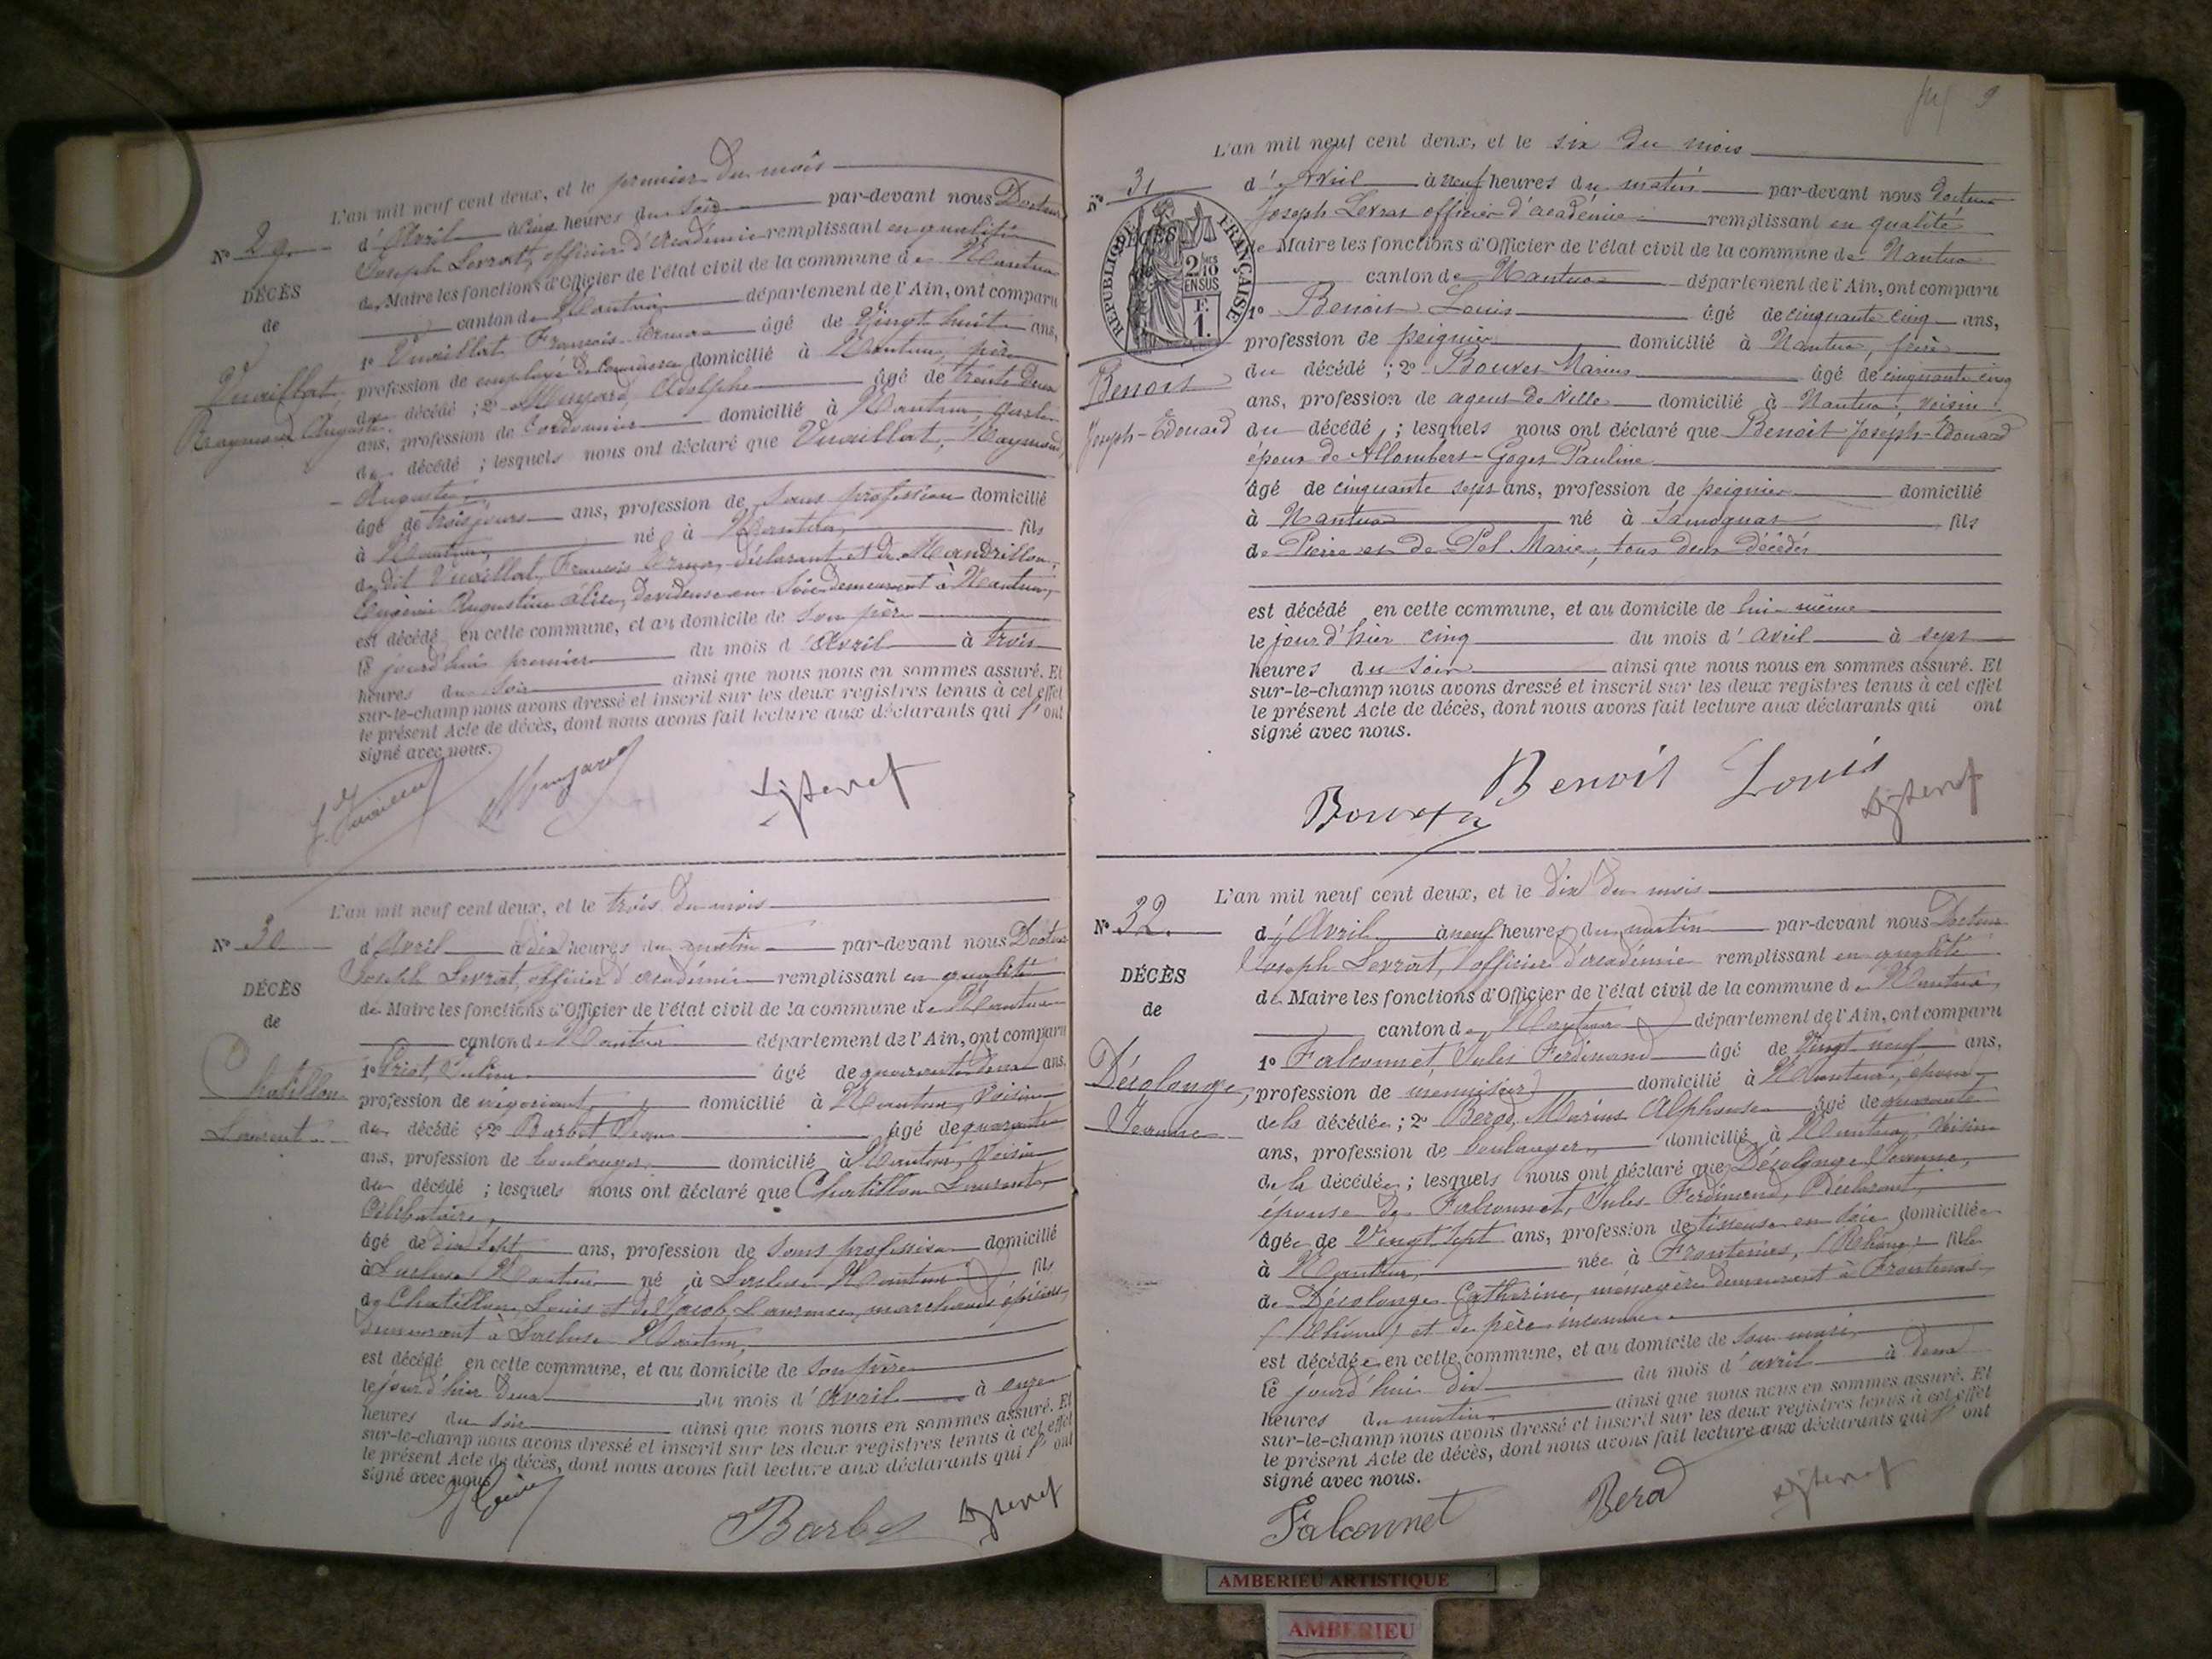 L'an mil neuf cent deux, et le premier du mois
N° 29
d'Avril à cinq heures du soir par-devant nous Docteur
Joseph Levrat, officier d'Académie remplissant en qualité
de Maire les fonctions d'Officier de l'état civil de la commune de Nantua
canton de Nantua département de l'Ain, ont comparu
DÉCÈS
de
Vuaillat
Raymond Auguste
1° Vuaillat François âgé de Vingt huit ans,
profession de employé de commerce domicilié à Nantua, père
du décédé ; 2° Adolphe âgé de trente deux
ans, profession de Cordonnier domicilié à Nantua,
du décédé ; lesquels nous ont déclaré que Vuaillat, Raymond
Auguste
âgé de trois jours ans, profession de sans profession domicilié
à Nantua, né à Nantua, fils
du dit Vuaillat, François déclarant et de Mandrillon,
Eugénie Augustine dévideuse en soie demeurant à Nantua,
est décédé en cette commune, et au domicile de son père
le jourd'hui premier du mois d'Avril à trois
heures du soir ainsi que nous nous en sommes assuré. Et
sur-le-champ nous avons dressé et inscrit sur les deux registres tenus à cet effet
le présent Acte de décès, dont nous avons fait lecture aux déclarants qui l'ont
signé avec nous.
L'an mil neuf cent deux, et le trois du mois
N° 30
d'Avril à dix heures du matin par-devant nous Docteur
Joseph Levrat, officier d'académie remplissant en qualité
de Maire les fonctions d'Officier de l'état civil de la commune de Nantua
canton de Nantua département de l'Ain, ont comparu
DÉCÈS
de
Chatillon
Laurent
1° âgé de quarante deux ans,
profession de négociant, domicilié à Nantua, voisin
du décédé ; 2° Barbet âgé de quarante
ans, profession de boulanger, domicilié à Nantua, voisin
du décédé ; lesquels nous ont déclaré que Chatillon Laurent,
célibataire,
âgé de dix sept ans, profession de sans profession domicilié
à Nantua né à Nantua fils
de Chatillon, Louis et de Jacob, Laurence, marchands épiciers,
demeurant à Nantua,
est décédé en cette commune, et au domicile de son père
le jour d'hier deux du mois d'Avril à onze
heures du soir ainsi que nous nous en sommes assuré. Et
sur-le-champ nous avons dressé et inscrit sur les deux registres tenus à cet effet
le présent Acte de décès, dont nous avons fait lecture aux déclarants qui l'ont
signé avec nous
Barbet
9
L'an mil neuf cent deux, et le six du mois
N° 31
d'Avril à neuf heures du matin par-devant nous docteur
Joseph Levrat officier d'académie remplissant en qualité
de Maire les fonctions d'Officier de l'état civil de la commune de Nantua
canton de Nantua département de l'Ain, ont comparu
RÉPUBLIQUE FRANÇAISE
DÉCÈS
2/10 EN SUS
F. 1.
Benoit
Joseph-Édouard
1° Benoit Louis âgé de cinquante cinq ans,
profession de peignier domicilié à Nantua, frère
du décédé ; 2° Bouvet Marius âgé de cinquante cinq
ans, profession de agent de Ville domicilié à Nantua, voisin
du décédé ; lesquels nous ont déclaré que Benoit Joseph-Édouard
époux de Allombert-Goget Pauline
âgé de cinquante sept ans, profession de peignier domicilié
à Nantua né à Samognat fils
de Pierre et de Pol Marie, tous deux décédés
est décédé en cette commune, et au domicile de lui-même
le jour d'hier cinq du mois d'avril à sept
heures du soir ainsi que nous nous en sommes assuré. Et
sur-le-champ nous avons dressé et inscrit sur les deux registres tenus à cet effet
le présent Acte de décès, dont nous avons fait lecture aux déclarants qui ont
signé avec nous.
Benoit Louis
L'an mil neuf cent deux, et le dix du mois
N° 32.
d'Avril à neuf heures du matin par-devant nous Docteur
Joseph Levrat, officier d'académie remplissant en qualité
de Maire les fonctions d'Officier de l'état civil de la commune de Nantua
canton de Nantua département de l'Ain, ont comparu
DÉCÈS
de
Désolange,
Jeanne
1° Falconnet, Jules Ferdinand âgé de Vingt neuf ans,
profession de menuisier domicilié à Nantua, époux
de la décédée ; 2° Berod, Marius Alphonse âgé de quarante
ans, profession de boulanger, domicilié à Nantua, voisin
de la décédée ; lesquels nous ont déclaré que Désolange Jeanne,
épouse de Falconnet, Jules Ferdinand, déclarant,
âgée de Vingt sept ans, profession de tisseuse en soie domiciliée
à Nantua, née à Frontenas, (Rhône) fille
de Désolange Catherine, ménagère demeurant à Frontenas
(Rhône) et de père inconnu.
est décédée en cette commune, et au domicile de son mari
le jourd'hui dix du mois d'avril à deux
heures du matin ainsi que nous nous en sommes assuré. Et
sur-le-champ nous avons dressé et inscrit sur les deux registres tenus à cet effet
le présent Acte de décès, dont nous avons fait lecture aux déclarants qui l'ont
signé avec nous.
Falconnet Berod
AMBERIEU ARTISTIQUE
AMBERIEU